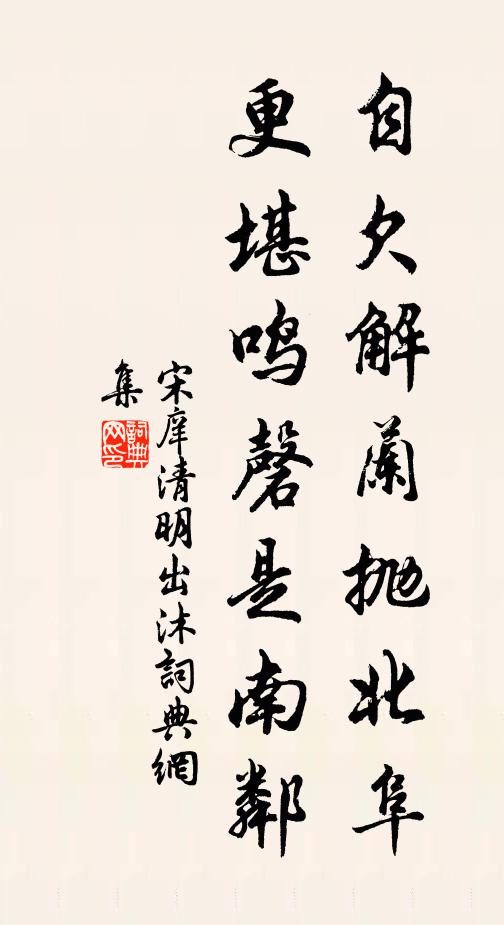 自欠解蘭拋北阜
更堪鳴磬是南鄰
宋庠清明出沐詞典網
集
詞典
网印